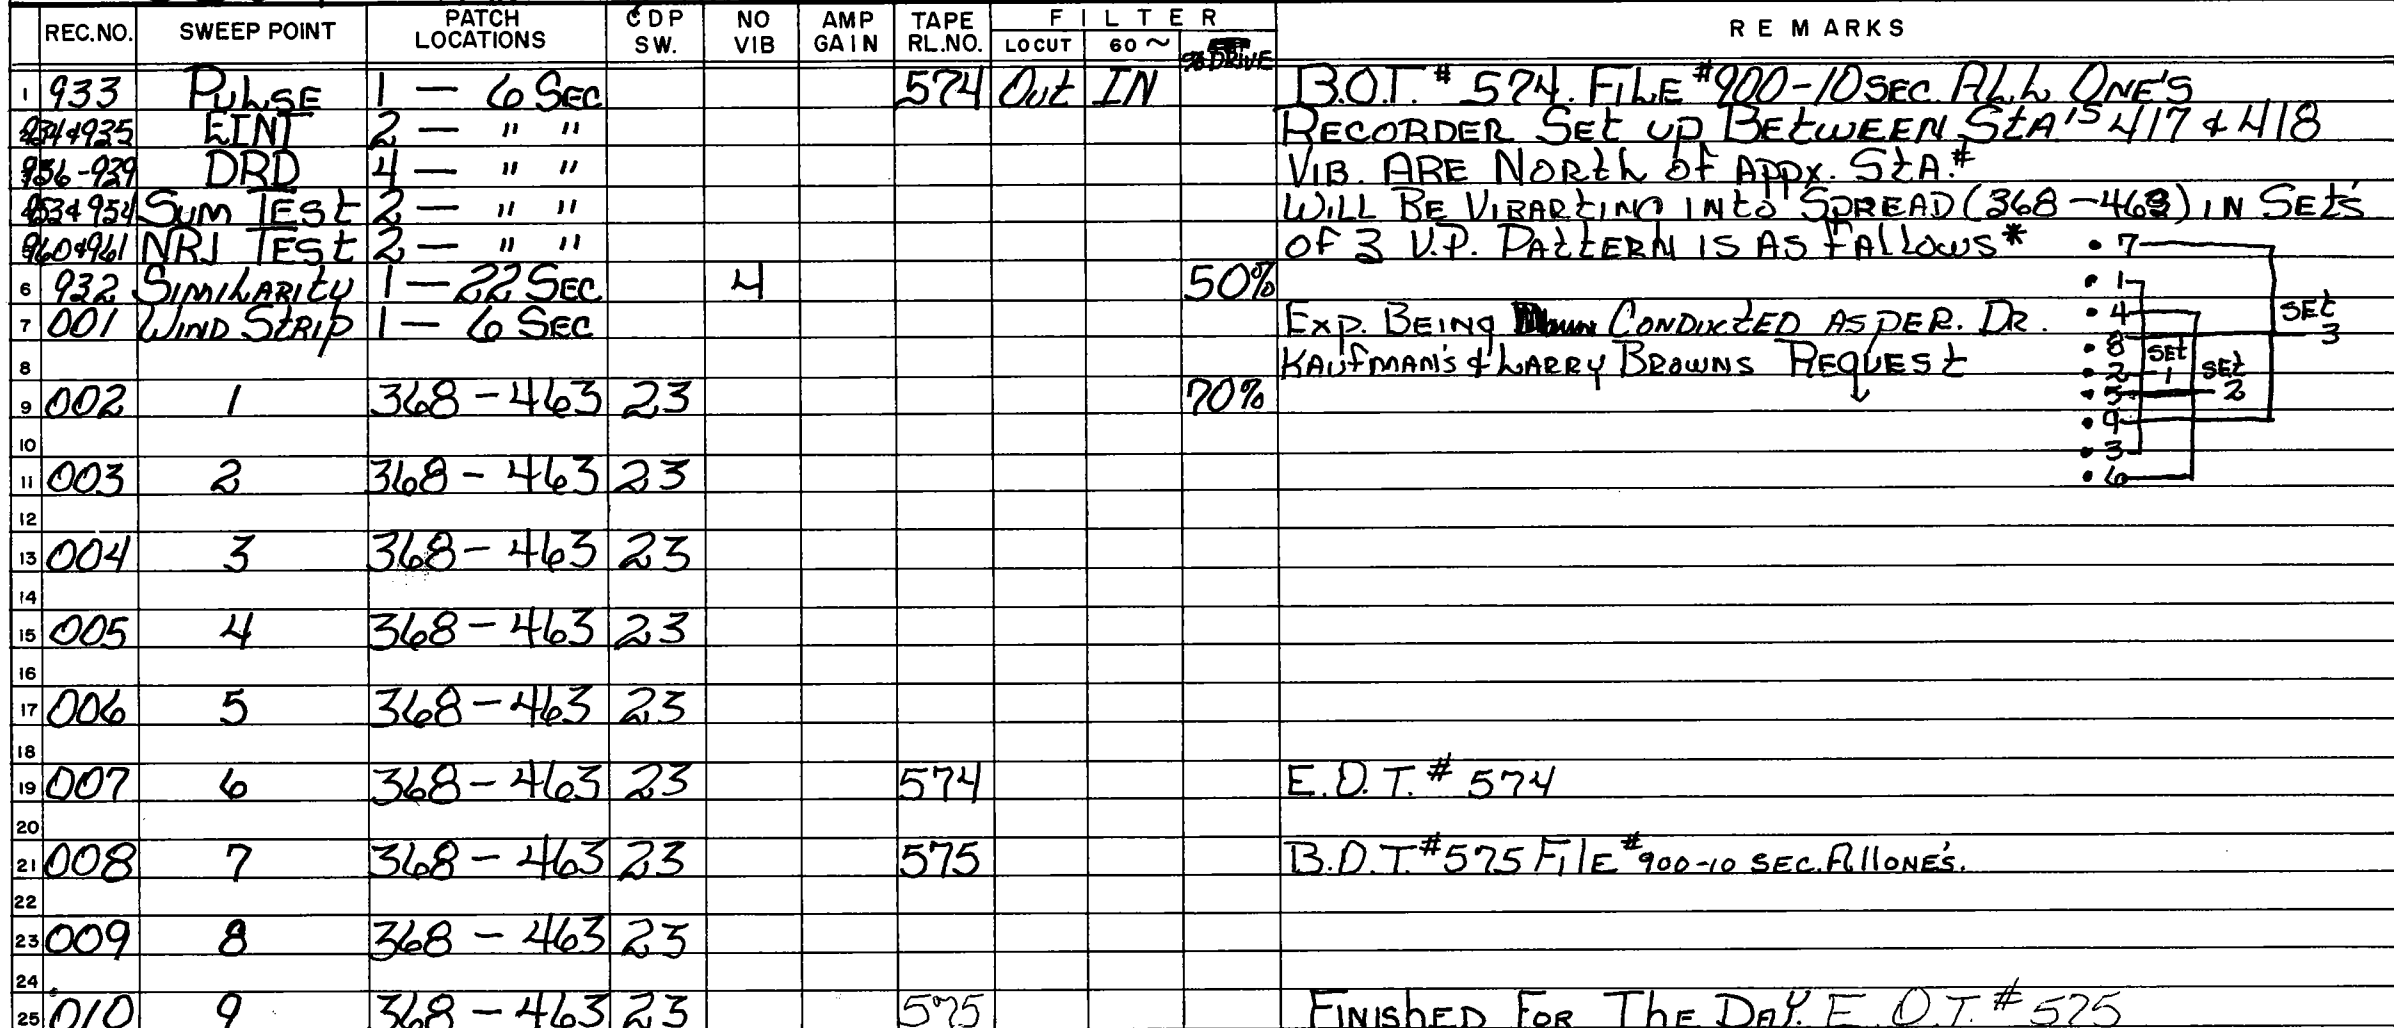 REC.NO. SWEEP POINT PATCH LOCATIONS CDP SW. NO VIB AMP GAIN TAPE RL.NO. FILTER LOCUT 60~ % DRIVE REMARKS
1 933 PULSE 1 — 6 SEC 574 Out IN B.O.T. # 574. FILE #900-10 SEC. ALL ONE'S
934&935 EINT 2 — " " RECORDER SEt UP BEtWEEN StA'S 417 & 418
DRD 4 — " " VIB. ARE NORth Of APPX. StA.#
953&954 SUM TESt 2 — " " WILL BE VIBARtING INtO SPREAD (368-463) IN SEtS
960&961 NRJ TESt 2 — " " OF 3 V.P. PAttERN IS AS FALLOWS* • 7
6 932 SIMILARItY 1 — 22 SEC 4 50% • 1
7 001 WIND StRIP 1 — 6 SEC EXP. BEING CONDUCtED AS PER. DR. • 4 SEt 3
8 KAUFMAN'S & LARRY BROWNS REQUESt • 8 SEt 1
9 002 1 368-463 23 70% • 2 SEt 2
• 5
10 • 9
• 3
11 003 2 368-463 23 • 6
12
13 004 3 368-463 23
14
15 005 4 368-463 23
16
17 006 5 368-463 23
18
19 007 6 368-463 23 574 E.O.T. # 574
20
21 008 7 368-463 23 575 B.O.T. #575 FilE #900-10 SEC. All ONE'S.
22
23 009 8 368-463 23
24
25 010 9 368-463 23 575 FINISHED FOR THE DAY. E.O.T. # 575